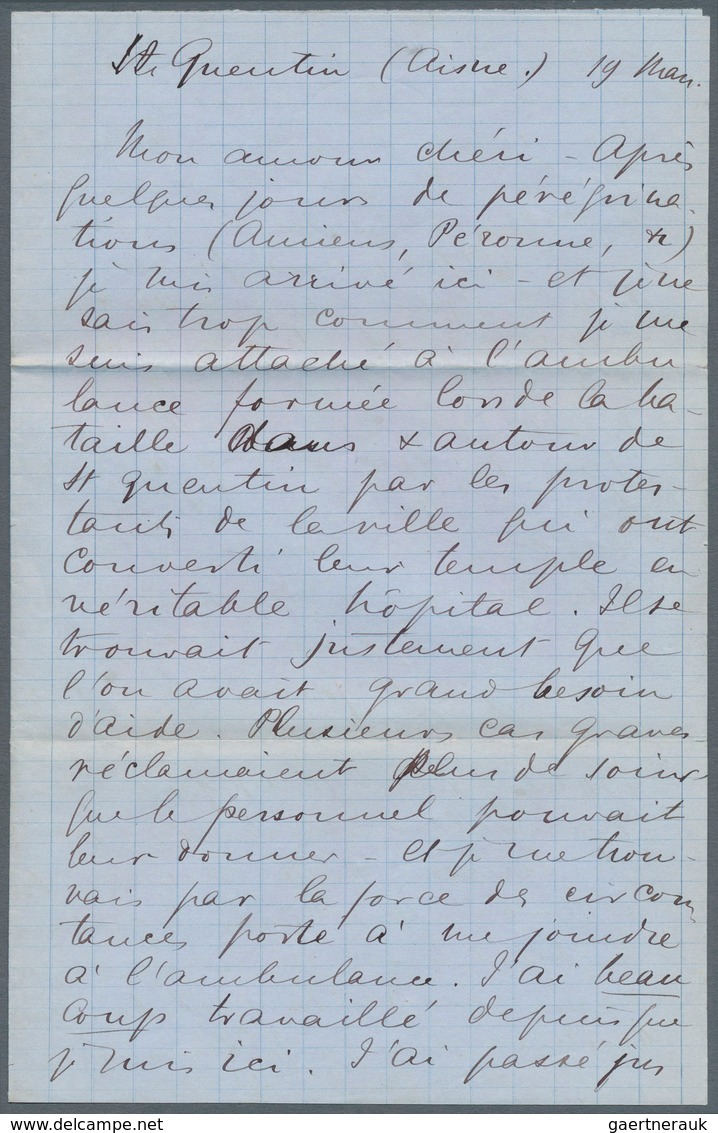 St Quentin (Aisne.) 19 Mars.
Mon amour chéri - Après
quelques jours de pérégrina-
tions (Amiens, Péronne, &)
je suis arrivé ici - et je ne
sais trop comment je me
suis attaché à l'ambu
lance formée lors de la ba-
taille dans & autour de
St Quentin par les protes-
tants de la ville qui ont
converti leur temple en
véritable hôpital. Il se
trouvait justement que
l'on avait grand besoin
d'aide. Plusieurs cas graves
réclamaient plus de soins
que le personnel pouvait
leur donner - et je me trou-
vais par la force des circons
tances porté à me joindre
à l'ambulance. J'ai beau
coup travaillé depuis que
je suis ici. J'ai passé jus
delcampe.net
gaertnerauk